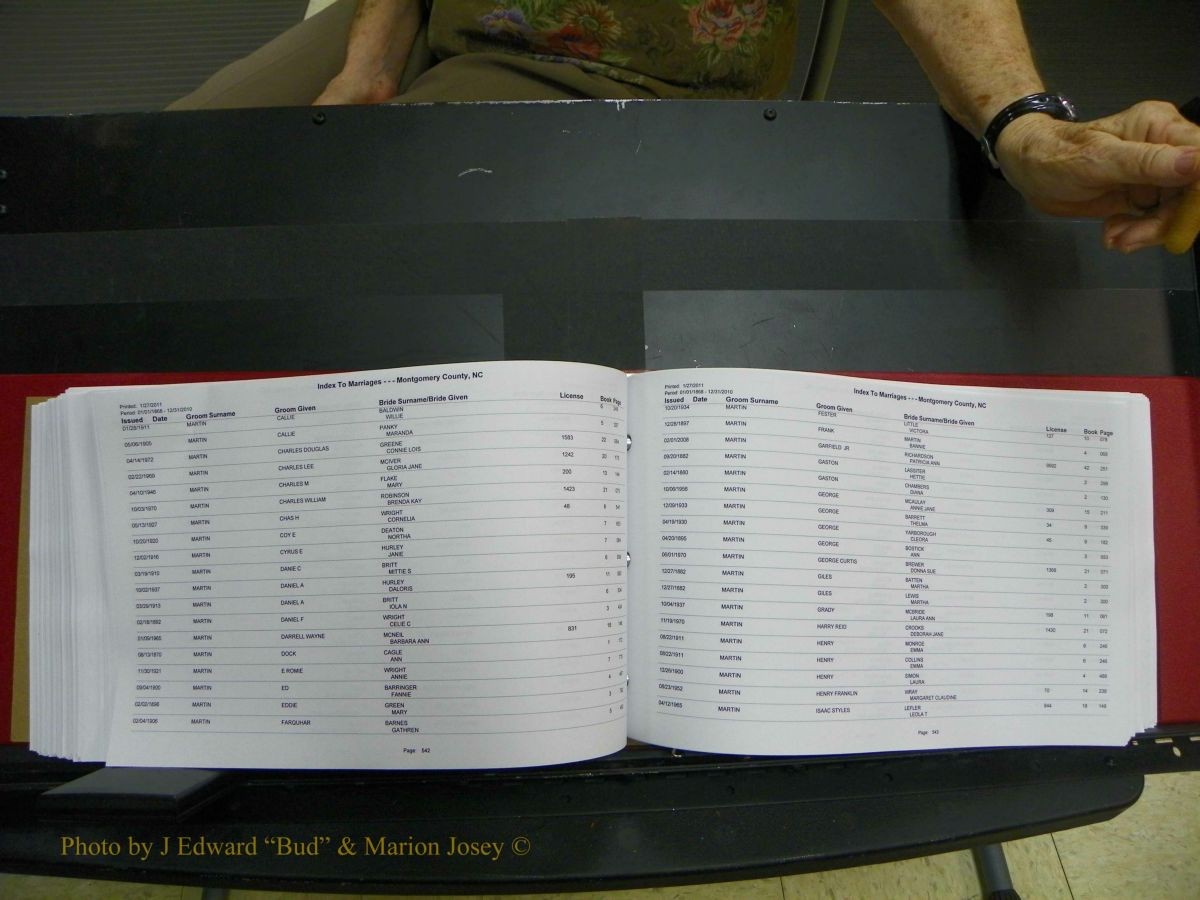 Index To Marriages - - - Montgomery County, NC
Printed: 1/27/2011
Period: 01/01/1868 - 12/31/2010
Issued Date Groom Surname Groom Given Bride Surname/Bride Given License Book Page
01/28/1911 MARTIN CALLIE BALDWIN 6
WILLIE
05/06/1905 MARTIN CALLIE PANKY 5
MARANDA
04/14/1972 MARTIN CHARLES DOUGLAS GREENE 1583 22
CONNIE LOIS
02/22/1969 MARTIN CHARLES LEE MCIVER 1242 20
GLORIA JANE
04/10/1946 MARTIN CHARLES M FLAKE 200 13
MARY
10/03/1970 MARTIN CHARLES WILLIAM ROBINSON 1423 21
BRENDA KAY
MARTIN CHAS H WRIGHT 46
CORNELIA
10/20/1920 MARTIN COY E DEATON 7
NORTHA
12/02/1916 MARTIN CYRUS E HURLEY 7
JANIE
03/19/1910 MARTIN DANIE C BRITT 6
MITTIE S
10/02/1937 MARTIN DANIEL A HURLEY 195 11
DALORIS
03/26/1913 MARTIN DANIEL A BRITT 6
IOLA N
02/18/1892 MARTIN DANIEL F WRIGHT 3
CELIE C
01/09/1965 MARTIN DARRELL WAYNE MCNEIL 831 18
BARBARA ANN
08/13/1870 MARTIN DOCK CAGLE
ANN
11/30/1921 MARTIN E ROMIE WRIGHT 7
ANNIE
09/04/1900 MARTIN ED BARRINGER 4
FANNIE
MARTIN EDDIE GREEN 3
MARY
02/04/1906 MARTIN FARQUHAR BARNES 5
GATHREN
Page: 542
Index To Marriages - - - Montgomery County, NC
Printed: 1/27/2011
Period: 01/01/1868 - 12/31/2010
Issued Date Groom Surname Groom Given Bride Surname/Bride Given License Book Page
10/20/1934 MARTIN FESTER LITTLE 127 10
VICTORA
12/28/1897 MARTIN FRANK MARTIN 4
BANNIE
02/01/2008 MARTIN GARFIELD JR RICHARDSON 42 251
PATRICIA ANN
09/20/1882 MARTIN GASTON LASSITER 2
HETTIE
02/14/1880 MARTIN GASTON CHAMBERS 2 130
DIANA
10/06/1956 MARTIN GEORGE MCAULAY 309 15 211
ANNIE JANE
12/09/1933 MARTIN GEORGE BARRETT 34 9 339
THELMA
04/19/1930 MARTIN GEORGE YARBOROUGH 45 9 182
CLEORA
04/20/1895 MARTIN GEORGE BOSTICK 3
ANN
06/01/1970 MARTIN GEORGE CURTIS BREWER 1366 21 071
DONNA SUE
12/27/1882 MARTIN GILES BATTEN 2 300
MARTHA
12/27/1882 MARTIN GILES LEWIS 2 300
MARTHA
10/04/1937 MARTIN GRADY MCBRIDE 198 11 061
LAURA ANN
11/19/1970 MARTIN HARRY REID CROOKS 1430 21 072
DEBORAH JANE
08/22/1911 MARTIN HENRY MONROE 6 246
EMMA
08/22/1911 MARTIN HENRY COLLINS 6 246
EMMA
12/26/1900 MARTIN HENRY SIMON 4 488
LAURA
08/23/1952 MARTIN HENRY FRANKLIN WRAY 70 14 238
MARGARET CLAUDINE
04/12/1965 MARTIN ISAAC STYLES LEFLER 844 18 148
LEOLA T
Page: 543
Photo by J Edward “Bud” & Marion Josey ©